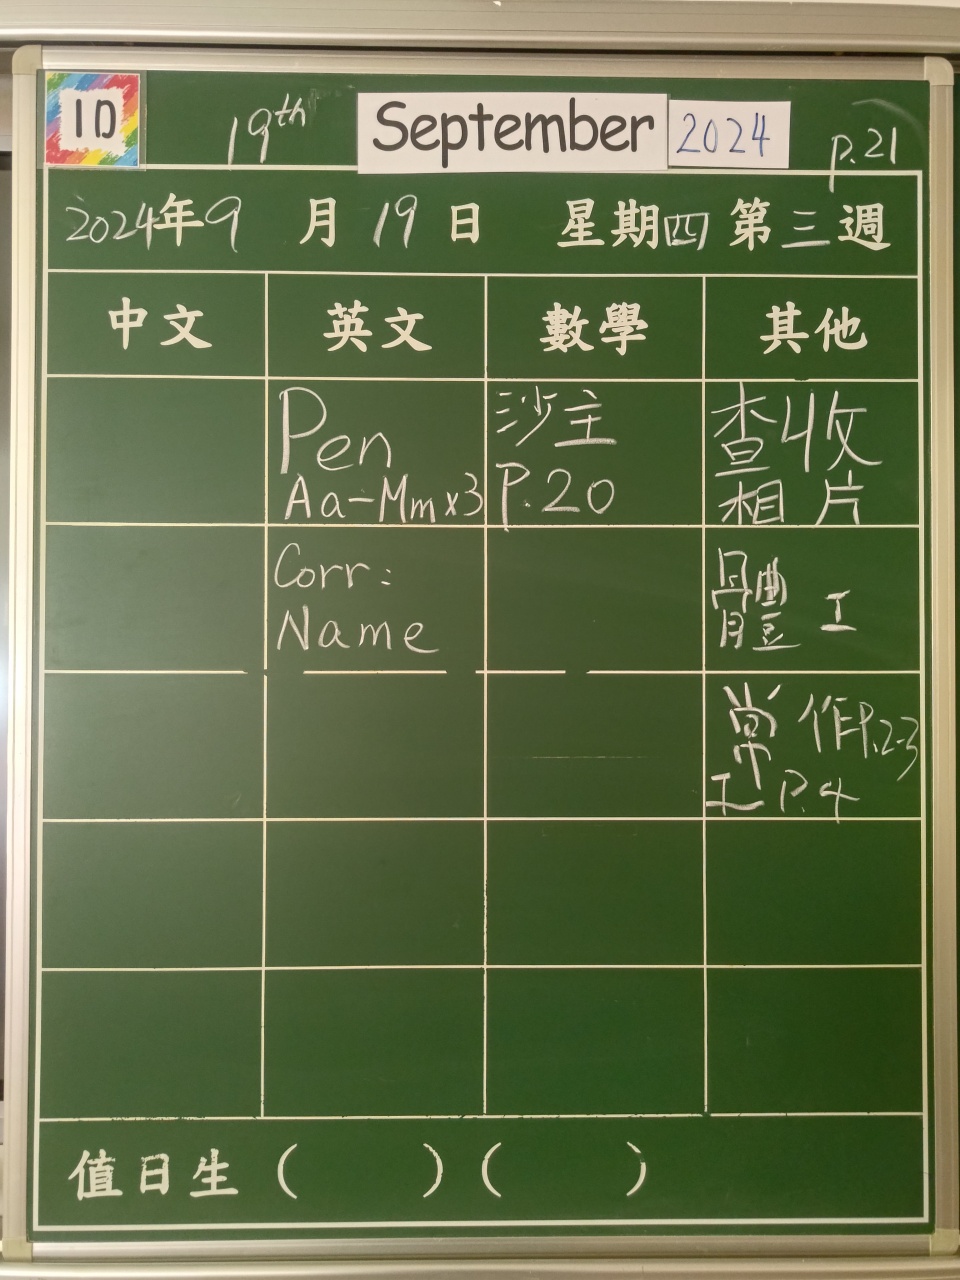 1D
19th September 2024 p.21
2024年9月19日 星期四 第三週
中文 英文 數學 其他
Pen
Aa-Mm x3
沙主
P.20
查收
相片
Corr:
Name
體 工
常 作P.2-3
工 P.4
值日生 ( ) ( )